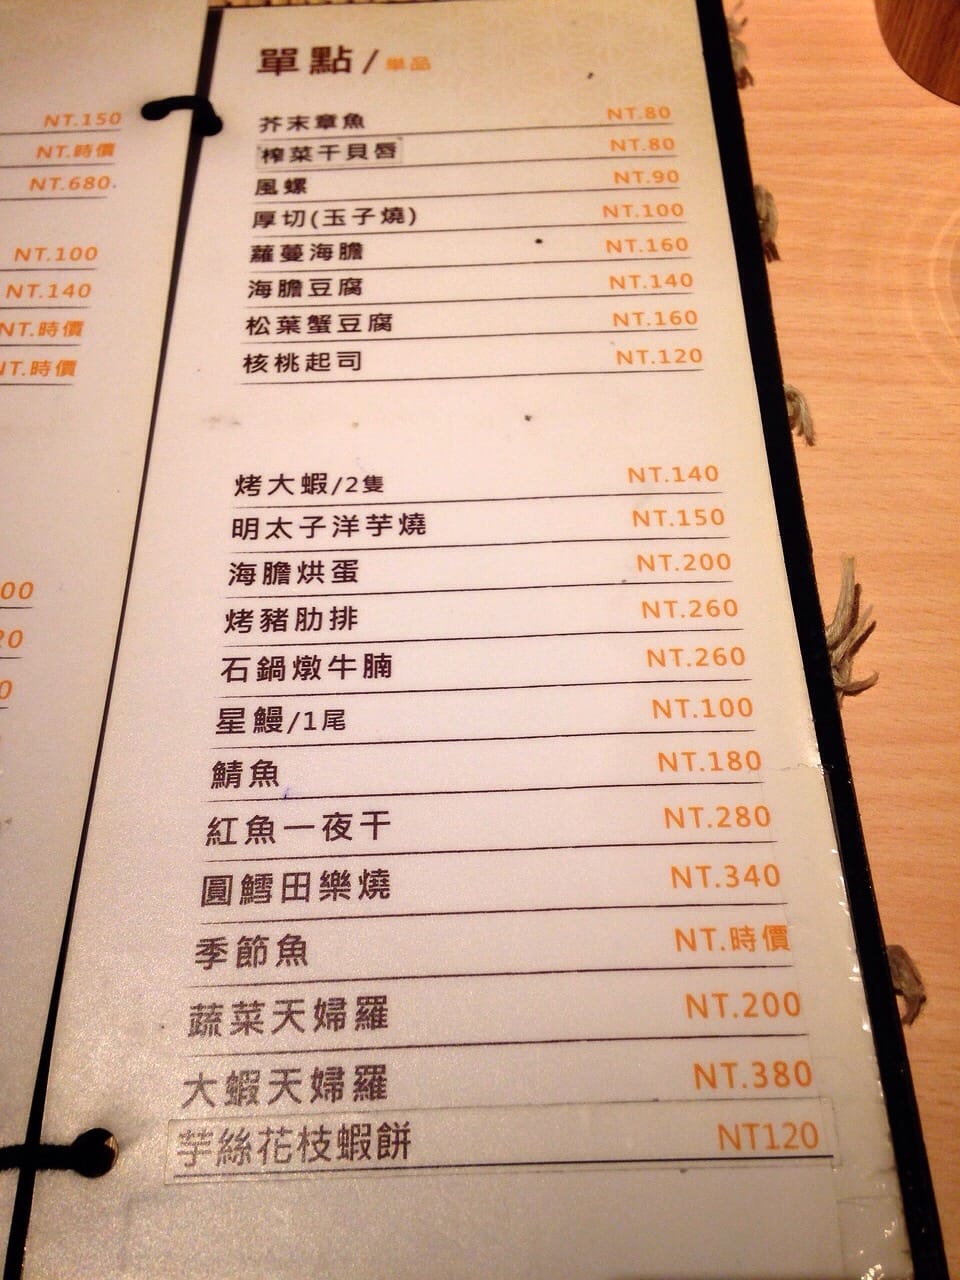 NT.150
NT.時價
NT.680.
NT.100
NT.140
NT.時價
NT.時價
00
20
0
單點/単品
芥末章魚 NT.80
榨菜干貝唇 NT.80
風螺 NT.90
厚切(玉子燒) NT.100
蘿蔓海膽 NT.160
海膽豆腐 NT.140
松葉蟹豆腐 NT.160
核桃起司 NT.120
烤大蝦/2隻 NT.140
明太子洋芋燒 NT.150
海膽烘蛋 NT.200
烤豬肋排 NT.260
石鍋燉牛腩 NT.260
星鰻/1尾 NT.100
鯖魚 NT.180
紅魚一夜干 NT.280
圓鱈田樂燒 NT.340
季節魚 NT.時價
蔬菜天婦羅 NT.200
大蝦天婦羅 NT.380
芋絲花枝蝦餅 NT120